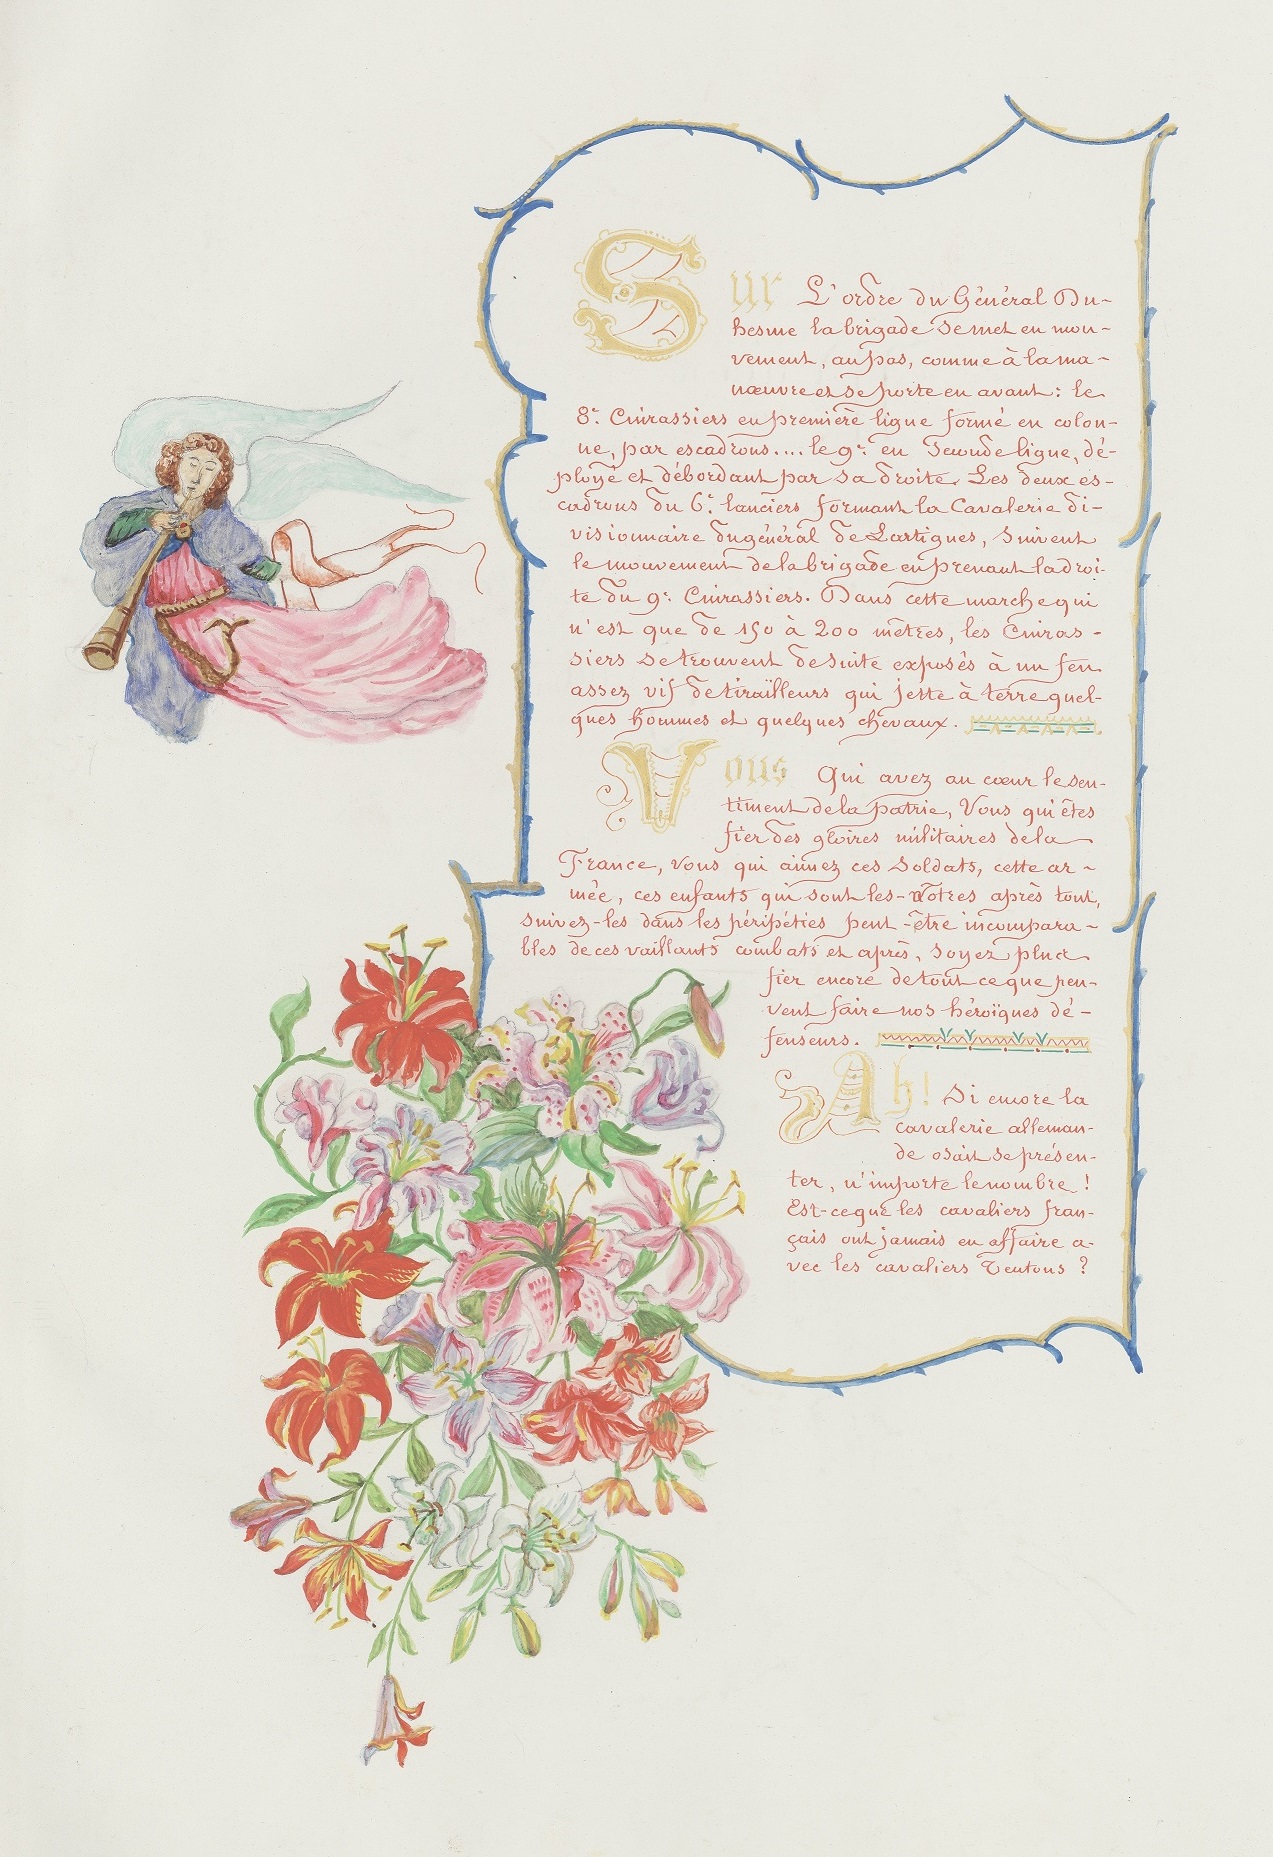 Sur L'ordre du Général Du-
hesme la brigade se met en mou-
vement, au pas, comme à la ma-
nœuvre et se porte en avant: le
8e Cuirassiers en première ligne formé en colon-
ne, par escadrons.... le 9e en Seconde ligne, dé-
ployé et débordant par sa droite. Les deux es-
cadrons du 6e lanciers formant la Cavalerie di-
visionnaire du général de Lartigues, Suivent
le mouvement de la brigade en prenant la droi-
te du 9e Cuirassiers. Dans cette marche qui
n'est que de 150 à 200 mètres, les Cuiras-
siers se trouvent de suite exposés à un feu
assez vif de tiraïlleurs qui jette à terre quel-
ques hommes et quelques chevaux.
Vous Qui avez au cœur le sen-
timent de la patrie, Vous qui êtes
fier des gloires militaires de la
France, vous qui aimez ces Soldats, cette ar-
mée, ces enfants qui sont les-vôtres après tout,
suivez-les dans les péripéties peut-être incompara-
bles de ces vaillants combats et après, Soyez plus
fier encore de tout ce que peu-
vent faire nos héroïques dé-
fenseurs.
Ah! Si encore la
cavalerie alleman-
de osait se présen-
ter, n'importe le nombre!
Est-ce que les cavaliers fran-
çais ont jamais eu affaire a-
vec les cavaliers Teutons?